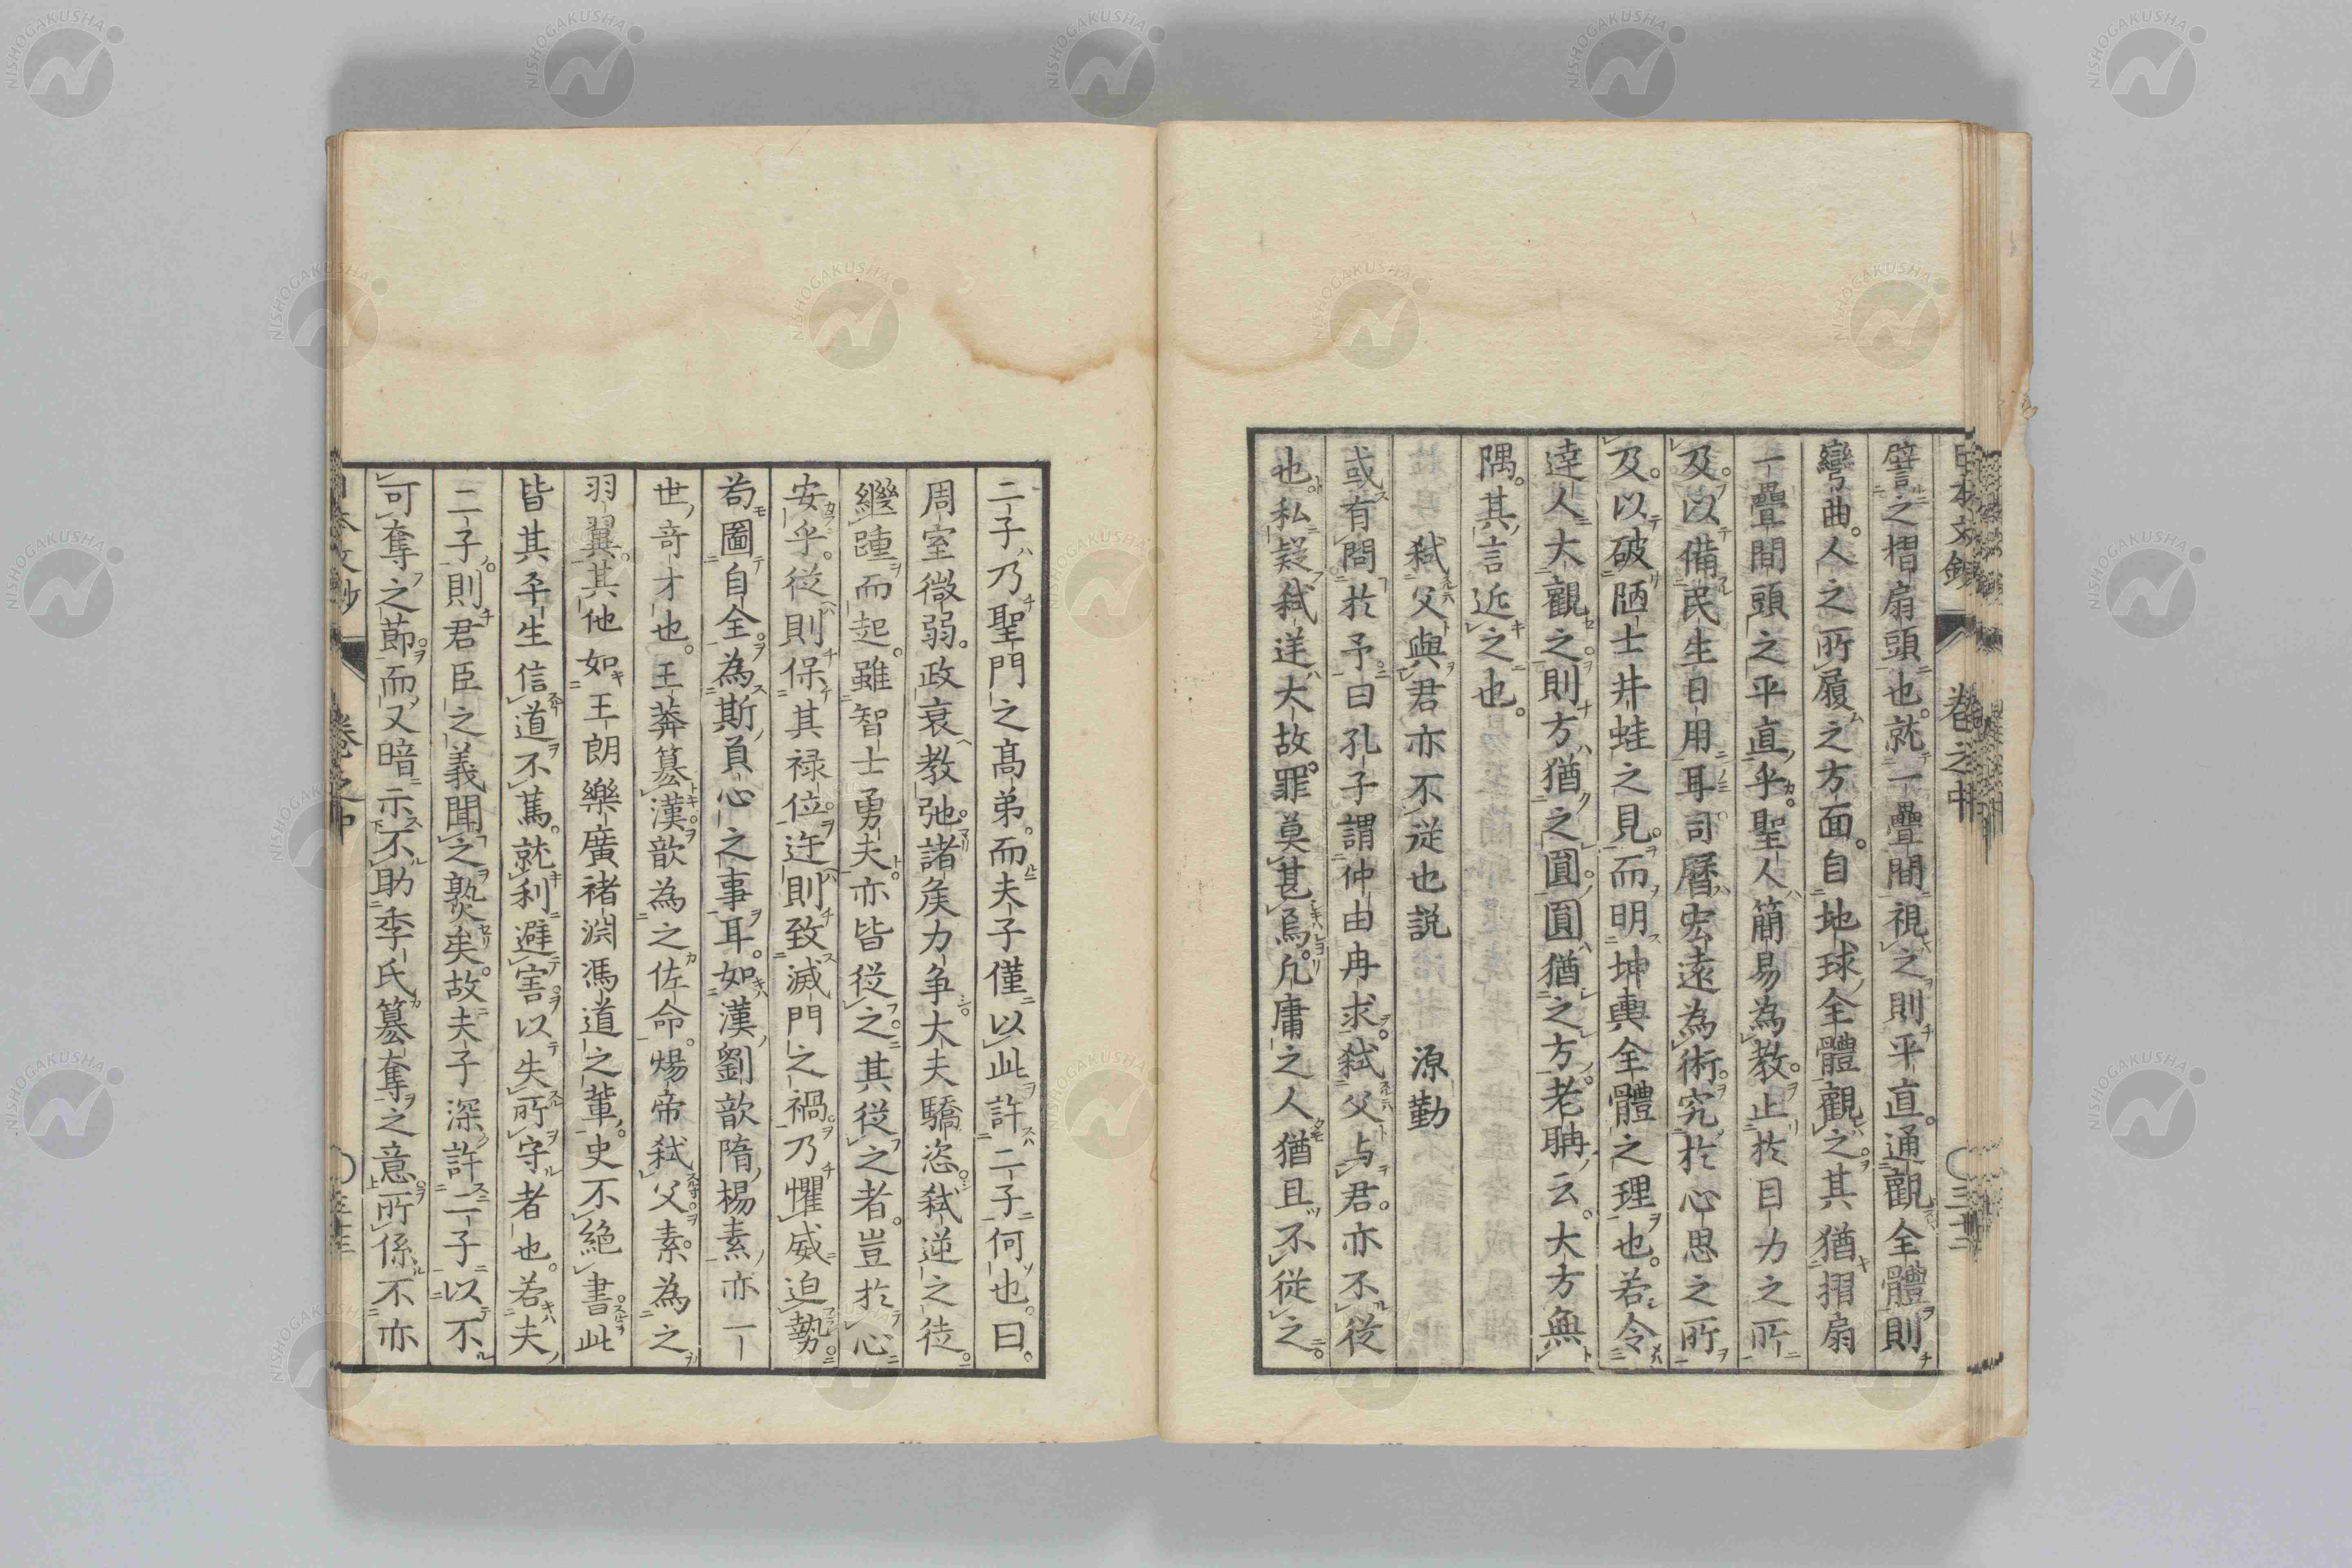 譬之摺扇頭也就一疊間視之則平直通觀全體則
彎曲人之所履之方面自地球全體觀之其猶摺扇
一疊間頭之平直乎聖人簡易為教止於目力之所
及以備民生日用耳司曆宏遠為術究於心思之所
及以破陋士井蛙之見而明坤輿全體之理也若令
達人大觀之則方猶之圓圓猶之方老聃云大方無
隅其言近之也
弒父與君亦不從也説 源勤
或有問於予曰孔子謂仲由冉求弒父与君亦不從
也私疑弒逆大故罪莫甚焉凡庸之人猶且不從之
二子乃聖門之高弟而夫子僅以此許二子何也曰
周室微弱政衰教弛諸矦力争大夫驕恣弒逆之徒
繼踵而起雖智士勇夫亦皆從之其從之者豈於心
安乎從則保其禄位迕則致滅門之禍乃懼威迫勢
苟圖自全為斯負心之事耳如漢劉歆隋楊素亦一
世奇才也王莽簒漢歆為之佐命煬帝弒父素為之
羽翼其他如王朗樂廣褚渕馮道之輩史不絶書此
皆其平生信道不篤就利避害以失所守者也若夫
二子則君臣之義聞之熟矣故夫子深許二子以不
可奪之節而又暗示不助季氏簒奪之意所係不亦
日本文鈔 卷之中
卷之中
NISHOGAKUSHA